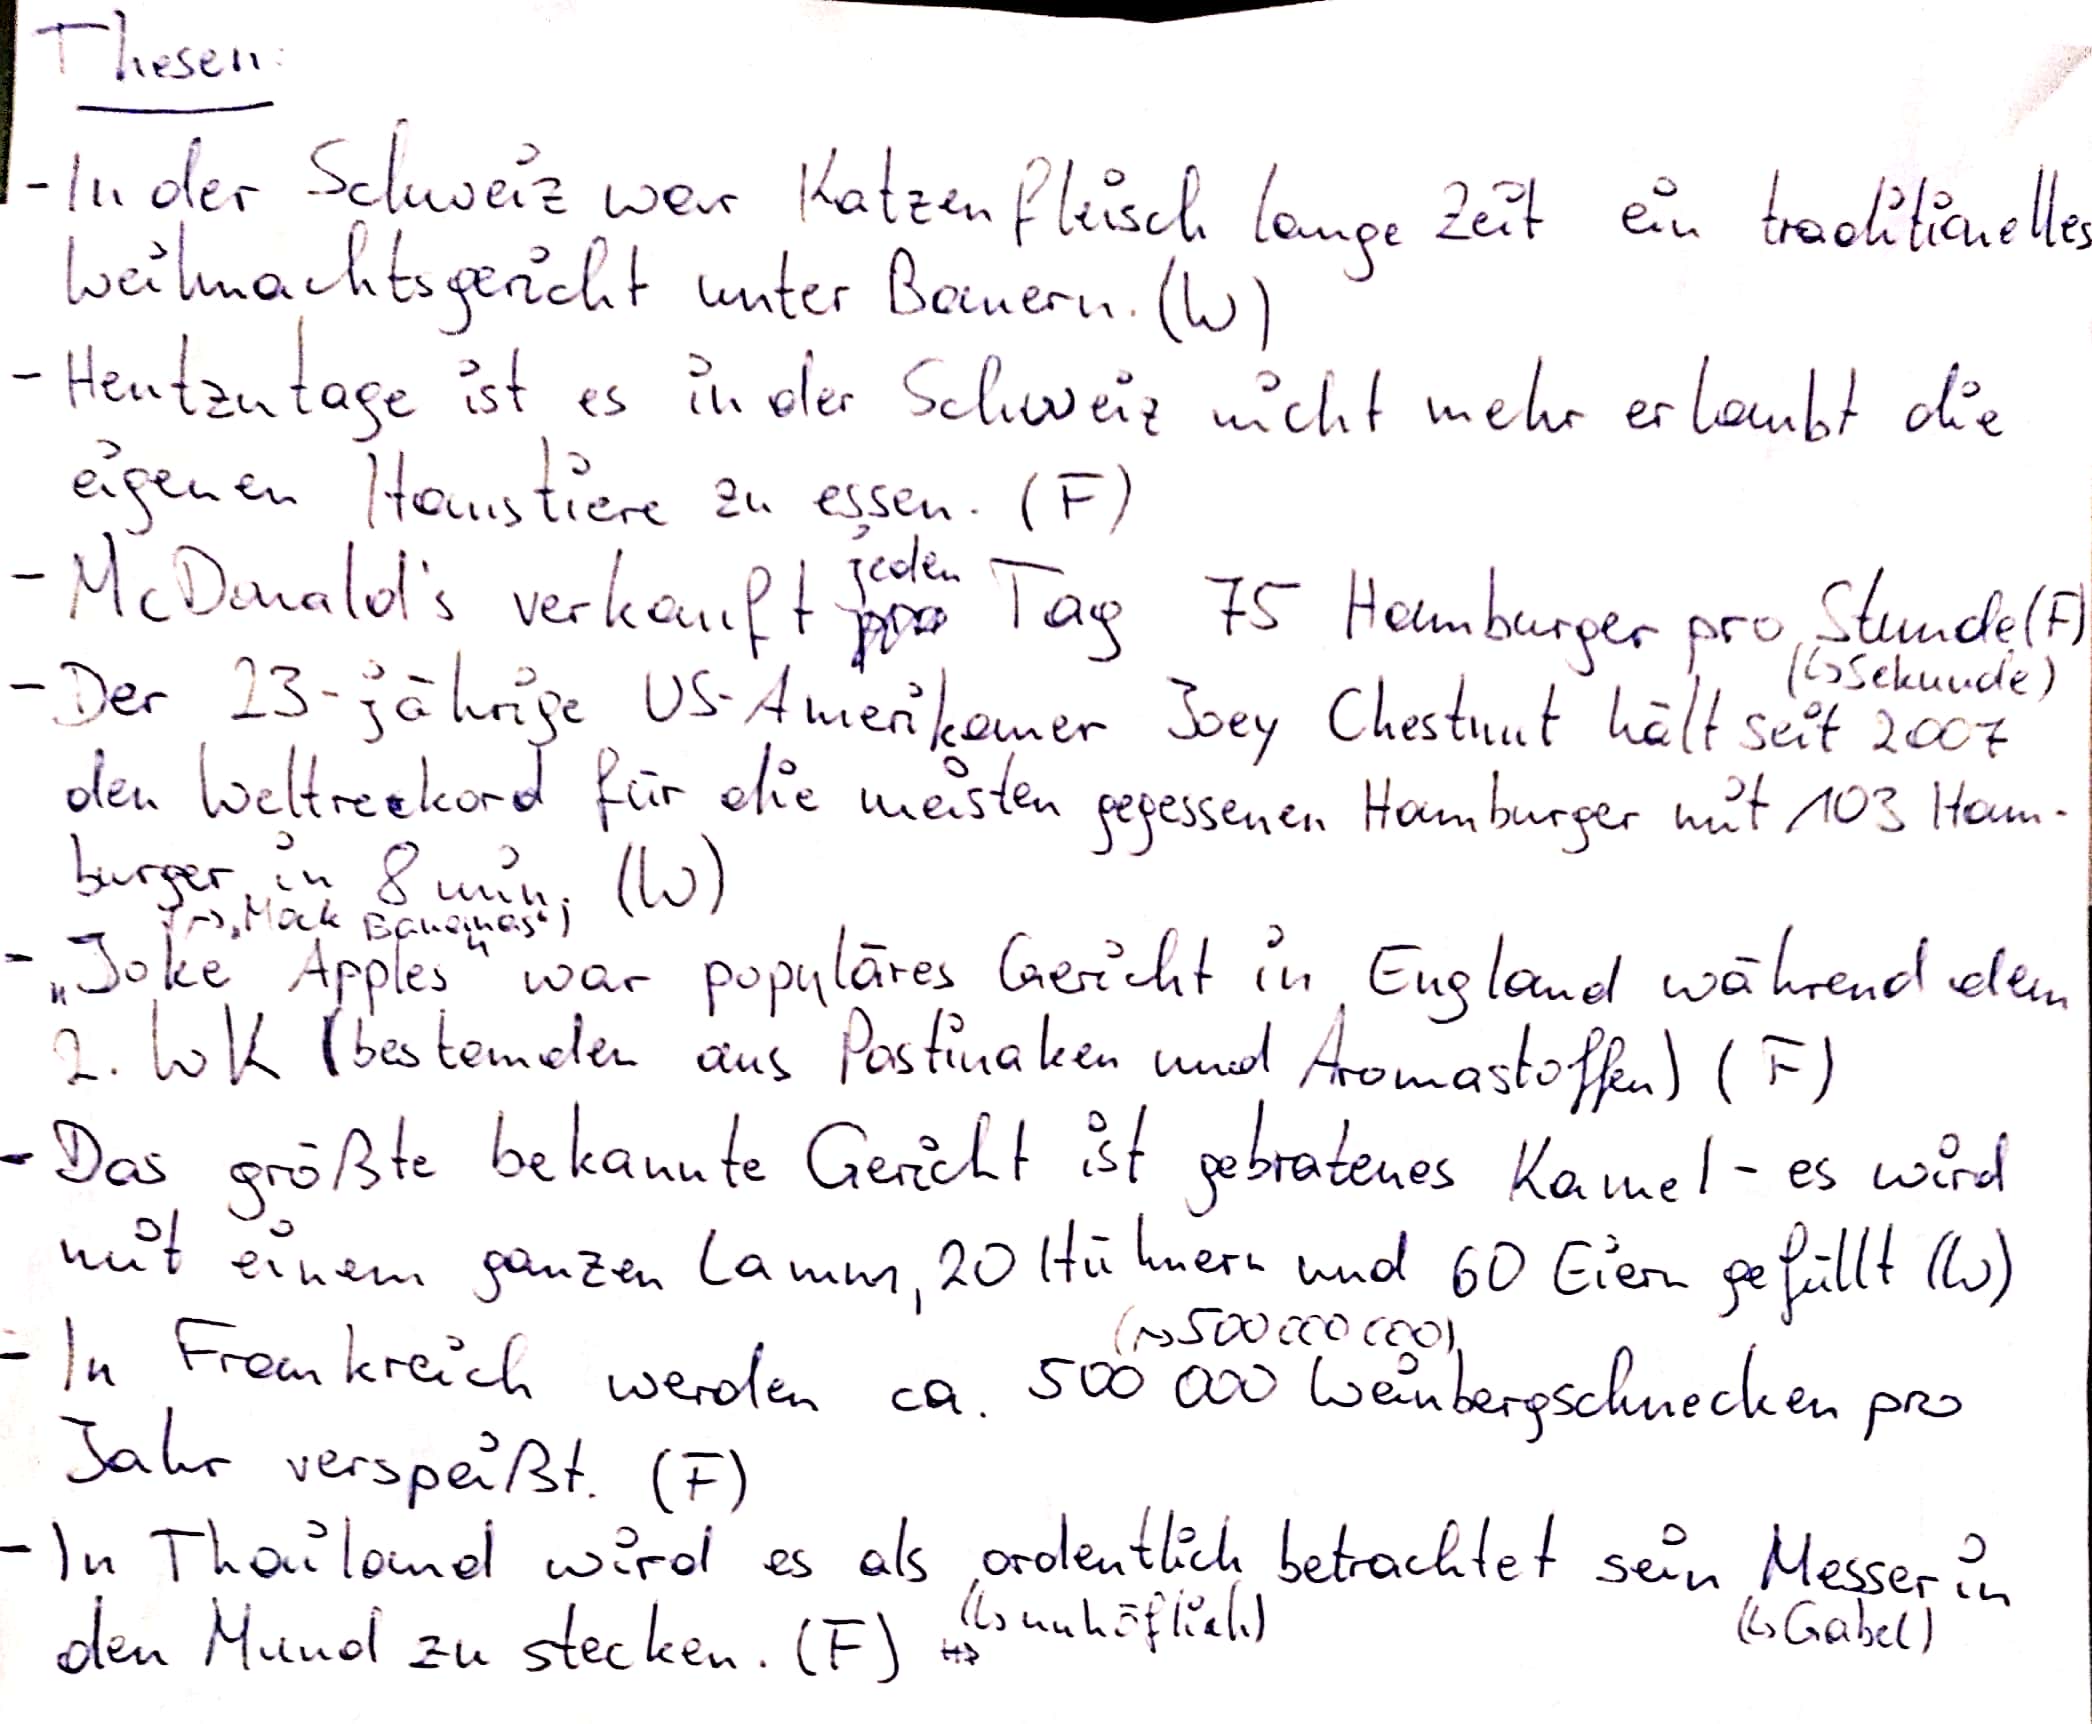 Thesen:
- In der Schweiz war Katzenfleisch lange Zeit ein traditionelles
Weihnachtsgericht unter Bauern. (W)
- Heutzutage ist es in der Schweiz nicht mehr erlaubt die
eigenen Haustiere zu essen. (F)
jeden
- McDonald's verkauft pro Tag 75 Hamburger pro Stunde (F)
(↳ Sekunde)
- Der 23-jährige US-Amerikaner Joey Chestnut hält seit 2007
den Weltreckord für die meisten gegessenen Hamburger mit 103 Ham-
burger in 8 min. (W)
(↳ „Mock Bananas“)
- „Joke Apples“ war populäres Gericht in England während dem
2. WK (bestanden aus Pastinaken und Aromastoffen) (F)
- Das größte bekannte Gericht ist gebratenes Kamel - es wird
mit einem ganzen Lamm, 20 Hühnern und 60 Eiern gefüllt (W)
(↳ 500 000 000)
- In Frankreich werden ca. 500 000 Weinbergschnecken pro
Jahr verspeißt. (F)
- In Thailand wird es als ordentlich betrachtet sein Messer in
(↳ unhöflich) (↳ Gabel)
den Mund zu stecken. (F)